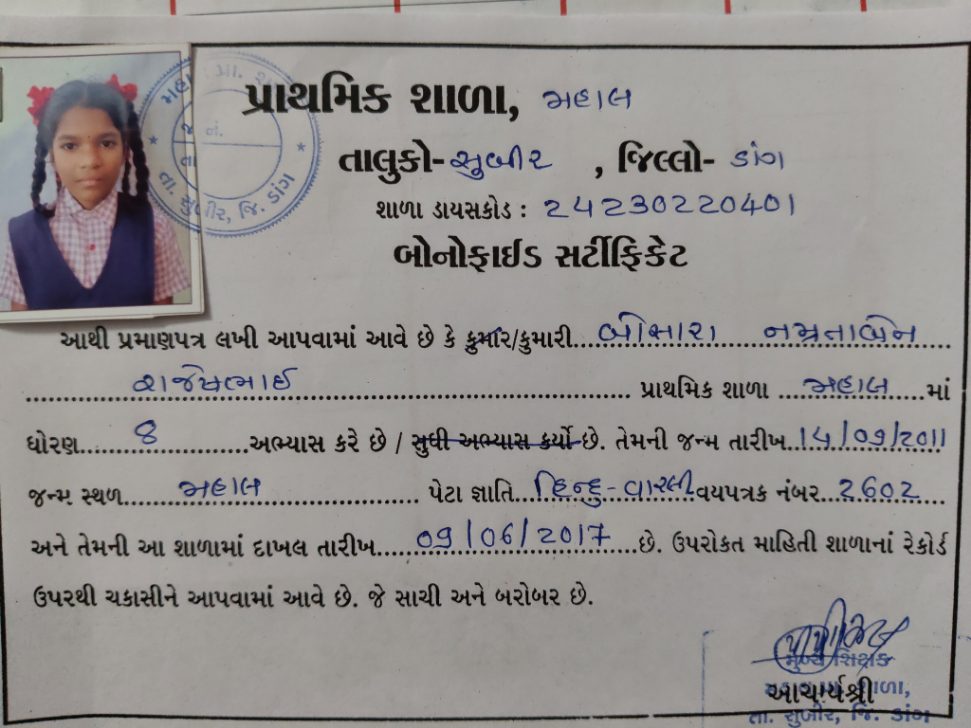 પ્રાથમિક શાળા, મહાલ
તાલુકો- સુબીર , જિલ્લો- ડાંગ
શાળા ડાયસકોડ : 24230220401
બોનોફાઈડ સર્ટીફિકેટ
આથી પ્રમાણપત્ર લખી આપવામાં આવે છે કે કુમાર/કુમારી. બીસારા નમ્રતાબેન
રાજેષભાઈ પ્રાથમિક શાળા મહાલ માં
ધોરણ 8 અભ્યાસ કરે છે / સુધી અભ્યાસ કર્યો છે. તેમની જન્મ તારીખ 14/09/2011
જન્મ સ્થળ મહાલ પેટા જ્ઞાતિ હિન્દુ-વારલી વયપત્રક નંબર 2602
અને તેમની આ શાળામાં દાખલ તારીખ 09/06/2017 છે. ઉપરોકત માહિતી શાળાનાં રેકોર્ડ
ઉપરથી ચકાસીને આપવામાં આવે છે. જે સાચી અને બરોબર છે.
મુખ્ય શિક્ષક
આચાર્યશ્રી
શાળા,
તા. સુબીર, જિ. ડાંગ
તા. સુબીર, જિ. ડાંગ